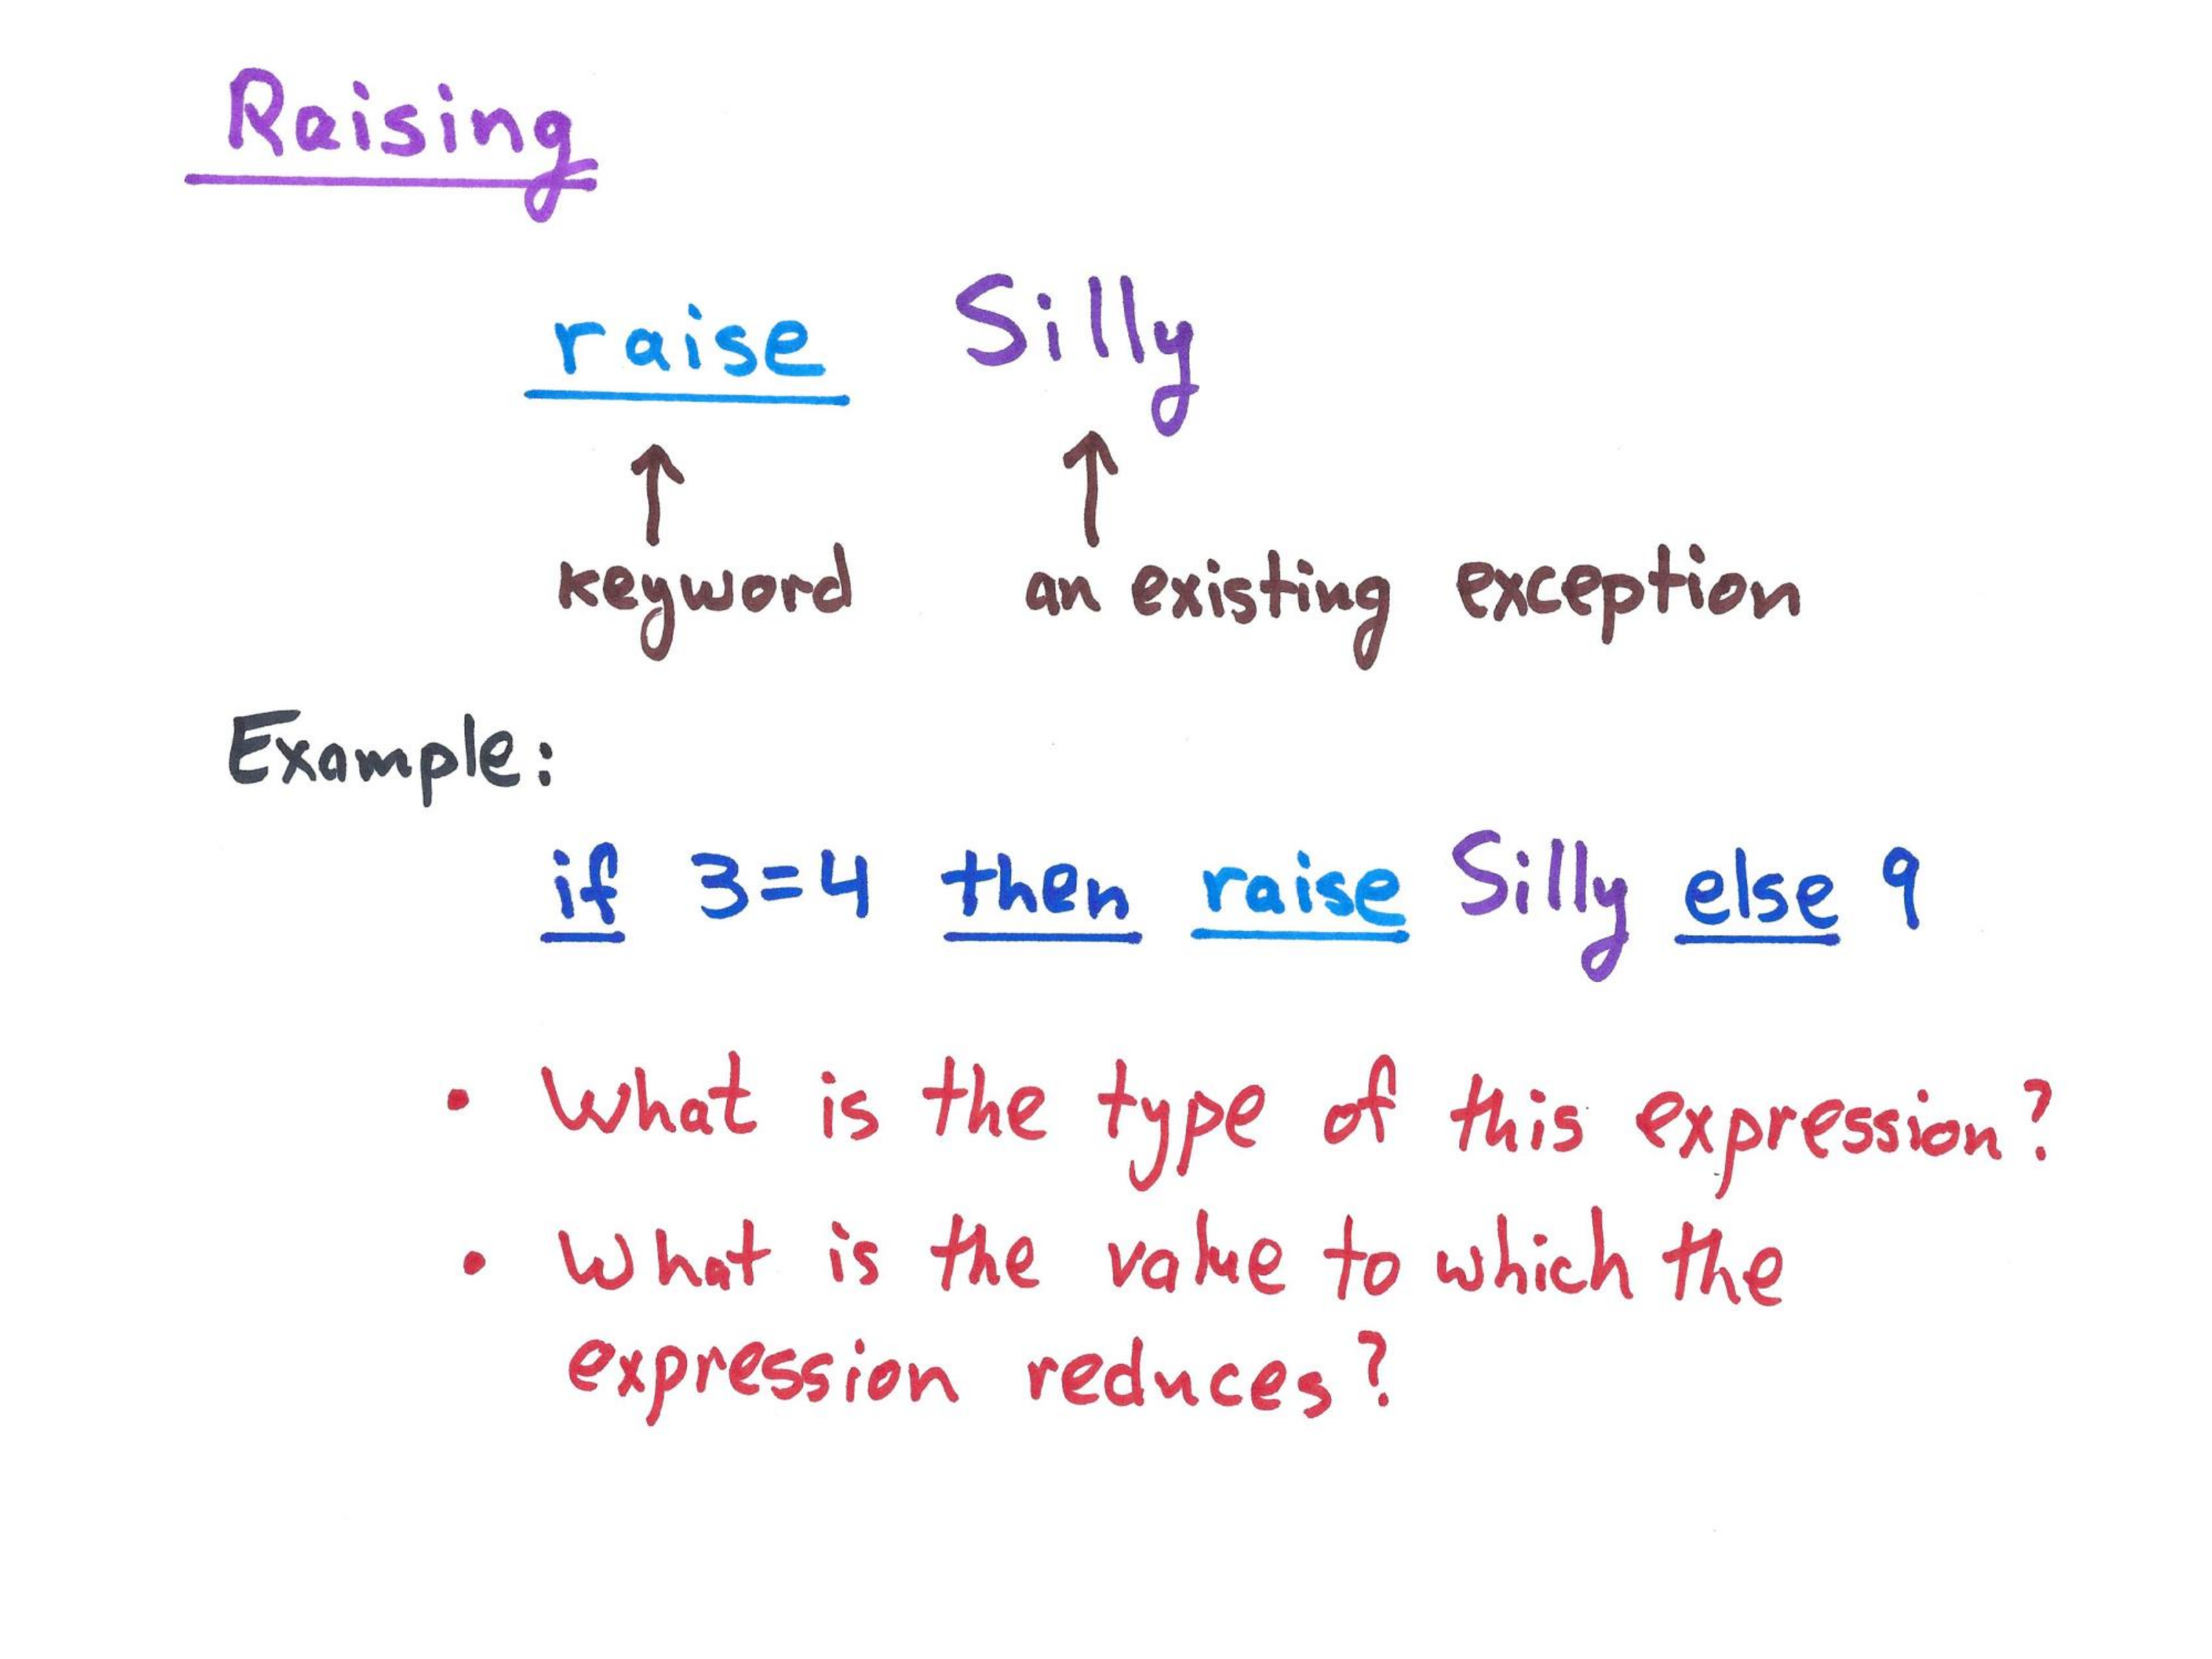 Raising
raise Silly
↑ ↑
keyword an existing exception
Example:
if 3=4 then raise Silly else 9
• What is the type of this expression?
• What is the value to which the
expression reduces?